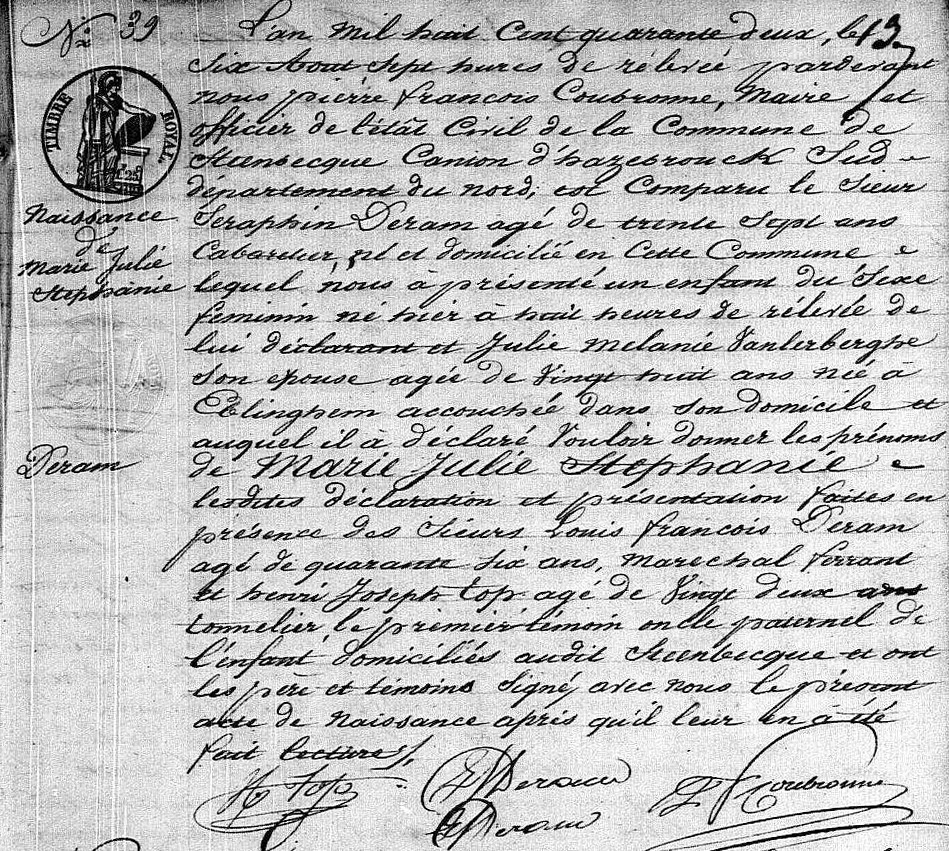 N° 39
13
TIMBRE ROYAL
Naissance
de
Marie Julie
Stephanie
Deram
L'an Mil huit Cent quarante deux, le
Six Aout sept hures de rélevée pardevant
nous pierre françois Coubronne, Maire et
officier de l'état Civil de la Commune de
Steenbecque Canton d'hazebrouck Sud
département du nord, est Comparu le Sieur
Seraphin Deram agé de trente Sept ans
Cabaretier, né et domicilié en Cette Commune
lequel nous à présenté un enfant du Sexe
feminin né hier à huit heures de rélevée de
lui déclarant et Julie Melanie Vanlerberghe
Son epouse agée de Vingt huit ans née à
Eblinghem accouchée dans son domicile et
auquel il à déclaré Vouloir donner les prénoms
de Marie Julie Stephanie
lesdites déclaration et présentation faites en
présence des Sieurs Louis françois Deram
agé de quarante Six ans, Marechal ferrant
et henri Joseph top agé de Vingt deux ans
tonnelier, le prémier témoin oncle paternel de
l'enfant domiciliés audit Steenbecque et ont
les père et témoins Signé, avec nous le présent
acte de Naissance après qu'il leur en à été
fait lecture,
H Top
Deram
Coubronne
Deram